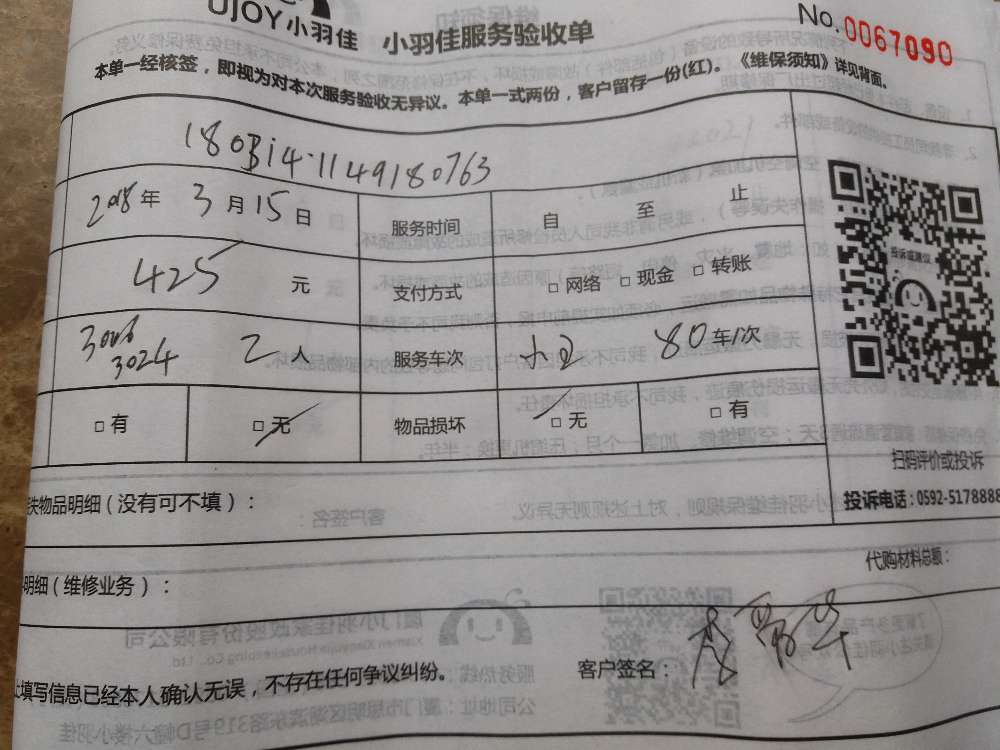 UJOY小羽佳 小羽佳服务验收单 No.0067090
本单一经核签，即视为对本次服务验收无异议。本单一式两份，客户留存一份(红)。《维保须知》详见背面。
180314·1149180763
2018年 3月15日 服务时间 自 至 止
425 元 支付方式 □网络 □现金 □转账
投诉或建议
3006 3024 2人 服务车次 80车/次
□有 □无 物品损坏 □无 □有
扫码评价或投诉
失物品明细(没有可不填)：
投诉电话：0592-5178888
代购材料总额：
明细(维修业务)：
客户签名：
填写信息已经本人确认无误，不存在任何争议纠纷。